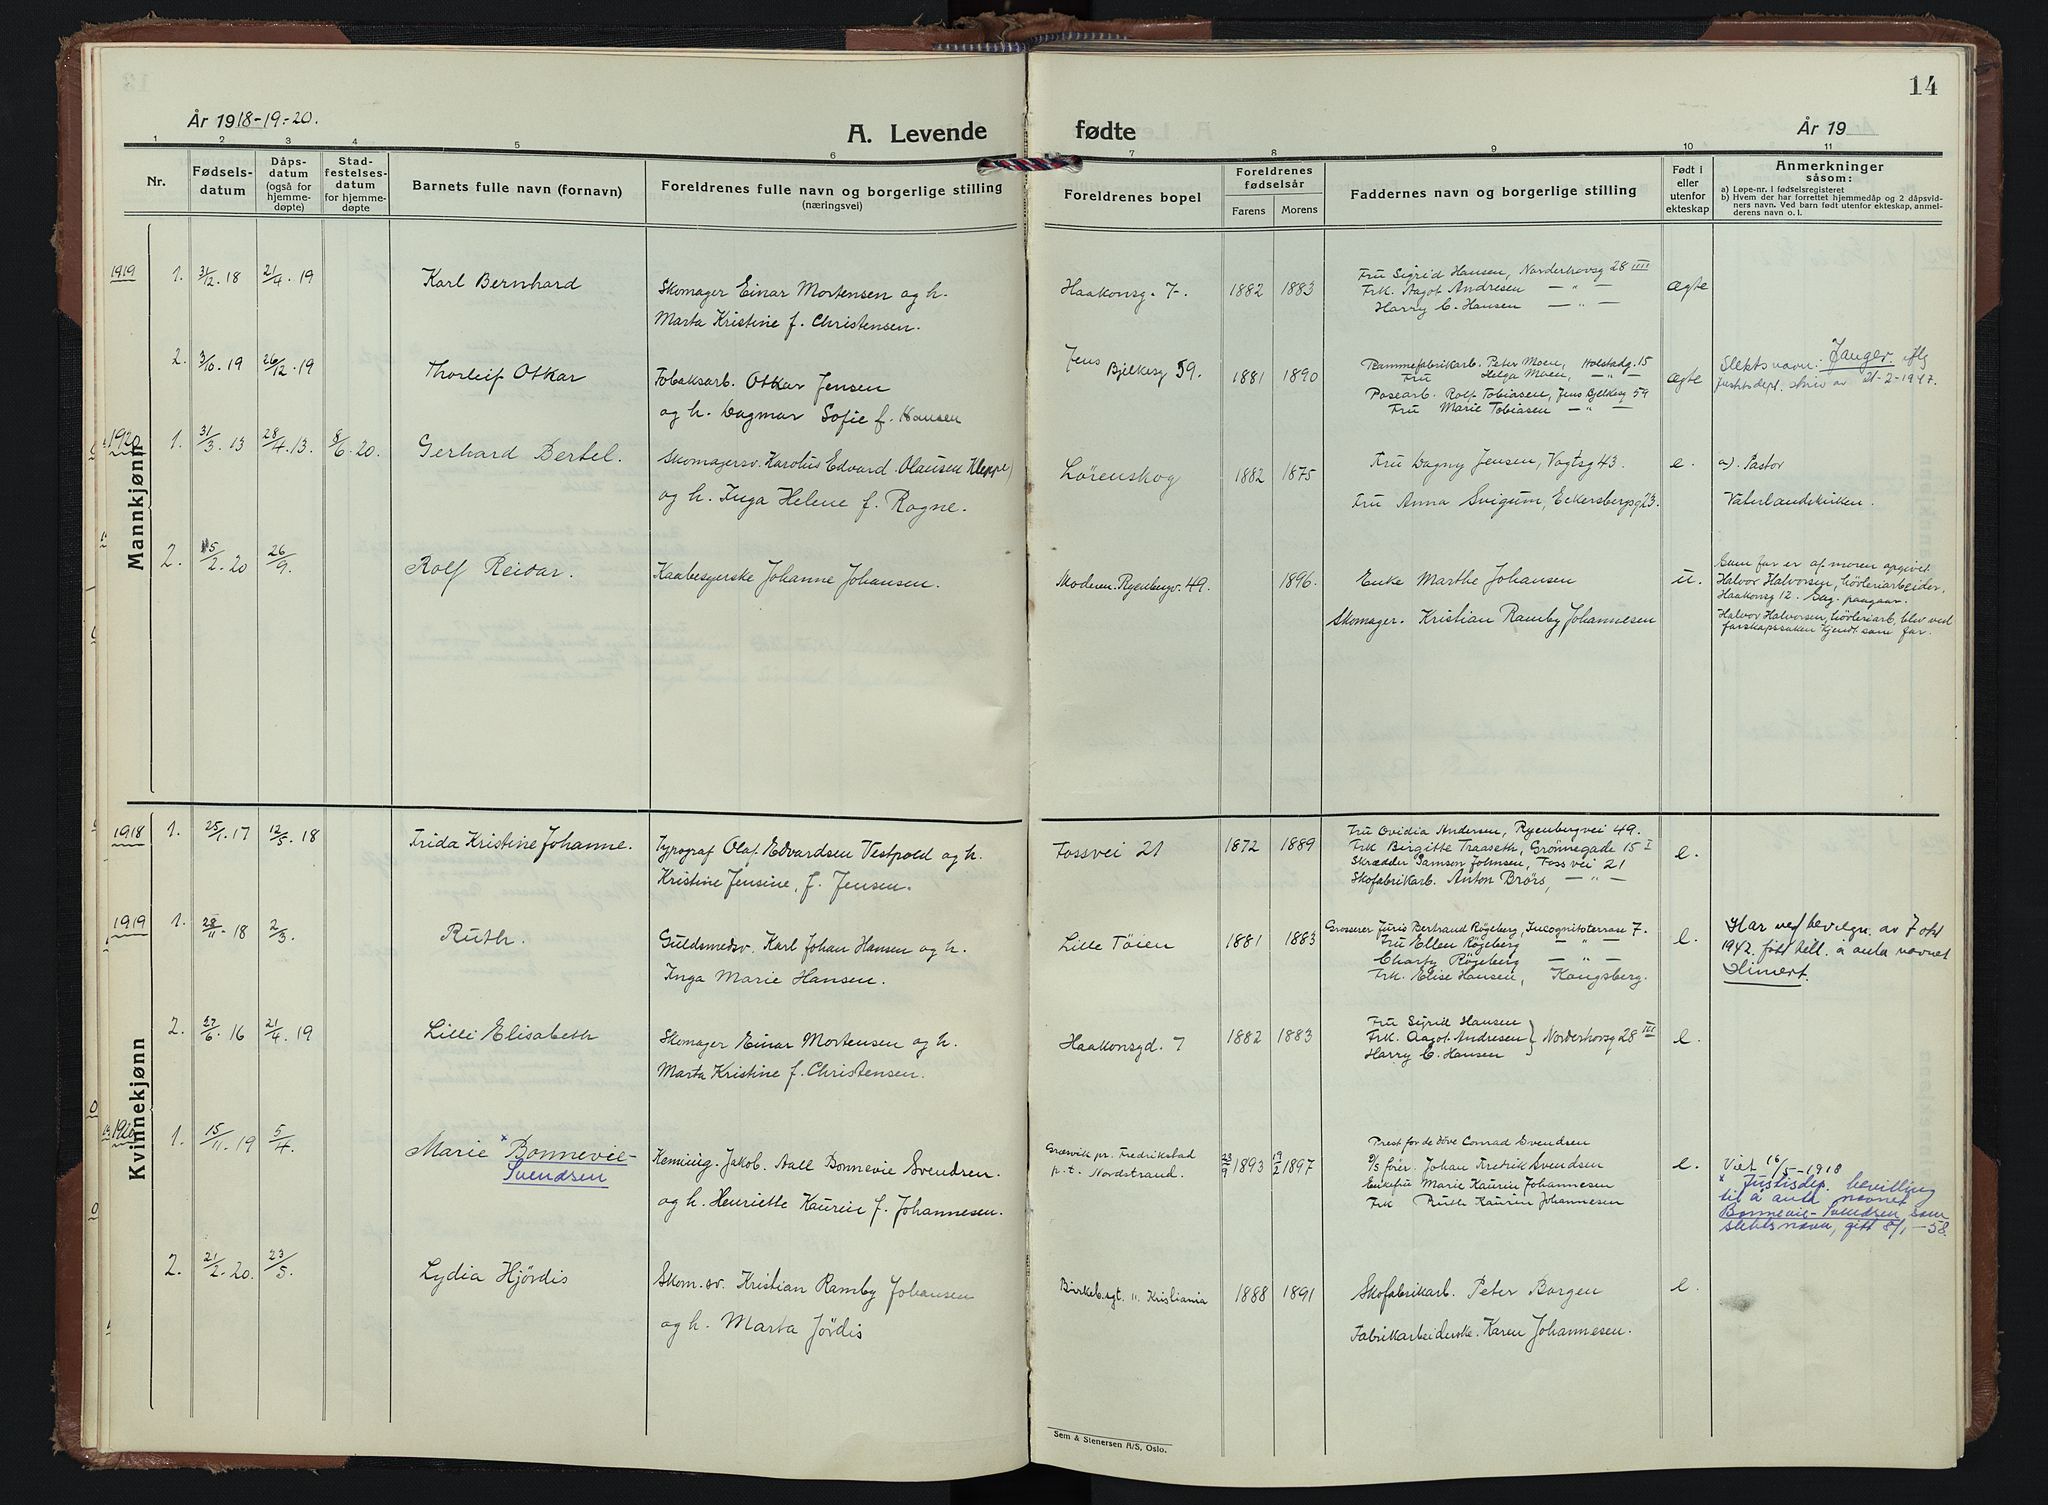 14
År 1918-19-20.
A. Levende
fødte
År 19
1 2 3 4 5 6 7 8 9 10 11
Nr.
Fødsels-
datum
Dåps-
datum
(også for
hjemme-
døpte)
Stad-
festelses-
datum
for hjemme-
døpte
Barnets fulle navn (fornavn)
Foreldrenes fulle navn og borgerlige stilling
(næringsvei)
Foreldrenes bopel
Foreldrenes
fødselsår
Farens Morens
Faddernes navn og borgerlige stilling
Født i
eller
utenfor
ekteskap
Anmerkninger
såsom:
a) Løpe-nr. i fødselsregisteret
b) Hvem der har forrettet hjemmedåp og 2 dåpsvid-
ners navn. Ved barn født utenfor ekteskap, anmel-
derens navn o. l.
Mannkjønn
1919
1. 31/12. 18 21/4. 19 Karl Bernhard
Skomager Einar Mortensen og h.
Marta Kristine f. Christensen.
Haakonsg. 7. 1882 1883
Fru Sigrid Hansen, Norderhovsg 28 III
Frk. Aagot Andresen — " —
Harry C. Hansen — " —
ægte
2. 3/10. 19 26/12. 19 Thorleif Otkar
Tobaksarb. Otkar Jensen
og h. Dagmar Sofie f. Hansen
Jens
Bjelkesg 59. 1881 1890
Rammefabrikarb. Peter Moen, Holstadg. 15
Fru Helga Moen, — " —
Posearb. Rolf Tobiasen, Jens Bjelkesg 59
Fru Marie Tobiasen — " —
ægte
Slektsnavn: Janger iflg
justisdept. skriv av 21-2-1947.
1920
1. 31/3. 13 28/4. 13. 8/6. 20. Gerhard Bertel.
Skomagersv. Karolus Edvard Olausen Kleppe)
og h. Inga Helene f. Rogne.
Lörenskog 1882 1875
Fru Dagny Jensen, Vogtsg 43.
Fru Anna Svigum, Eckersbergsg 23.
e.
a). Pastor
Vaterlandskirken.
2. 15/2. 20 26/9. Rolf Reidar.
Kaabesyerske Johanne Johansen.
Moderen. Ryenbergv. 49. 1896.
Enke Marthe Johansen
Skomager. Kristian Ramby Johannesen
u.
Som far er af moren opgivet
Halvor Halvorsen, hövleriarbeider,
Haakonsg 12. Sag paagaar.
Halvor Halvorsen, hövleriarb, blev ved
farskapssaken kjendt som far.
Kvinnekjønn
1918
1. 25/1. 17 12/5. 18 Frida Kristine Johanne.
Typograf Olaf Edvardsen Vestpold og h.
Kristine Jensine, f. Jensen.
Fossvei 21 1872 1889
Fru Ovidia Andersen, Ryenbergvei 49.
Frk Birgitte Traaseth, Grönnegade 15 I
Skrædder Samson Johnsen, Fossvei 21
Skofabrikarb. Anton Brörs, — " —
e.
1919
1. 28/11. 18 2/3. Ruth.
Guldsmedsv. Karl Johan Hansen og h.
Inga Marie Hansen.
Lille Töien 1881 1883
Grosserer Juris Bertrand Rögeberg, Incognitoterrase 7.
Fru Ellen Rögeberg — " —
Charty Rögeberg — " —
Frk. Elise Hansen, Kongsberg.
e.
Har ved bevilgn. av 7 okt
1942. fått till. å anta navnet
Himert.
2. 27/6. 16 21/4. 19 Lilli Elisabeth
Skomager Einar Mortensen og h.
Marta Kristine f. Christensen.
Haakonsgd. 7 1882 1883
Fru Sigrid Hansen
Frk. Aagot Andresen } Norderhovsg 28 III
Harry C. Hansen
e.
1920
1. 15/11. 19 5/4 Marie × Bonnevie-
Svendsen
Kemiing. Jakob. Aall Bonnevie Svendsen.
og h. Henriette Kaurin f. Johannesen.
Græsvik pr. Fredrikstad
p. t. Nordstrand. 23/9 1893 19/2 1897
Prest for de döve Conrad Svendsen
D/S förer. Johan Fredrik Svendsen
Enkefru Marie Kaurin Johannesen
Frk Ruth Kaurin Johannesen
e.
Viet 16/5-1918
× Justisdep. bevilling
til å anta navnet
Bonnevie-Svendsen som
slektsnavn, gitt 8/1-58.
2. 21/2. 20. 23/5. Lydia Hjördis
Skom. sv. Kristian Ramby Johansen
og h. Marta Jördis
Birkeb.gt. 11. Kristiania 1888 1891
Skofabrikarb. Peter Borgen
Fabrikarbeiderske. Karen Johannesen.
e.
Sem & Stenersen A/S, Oslo.